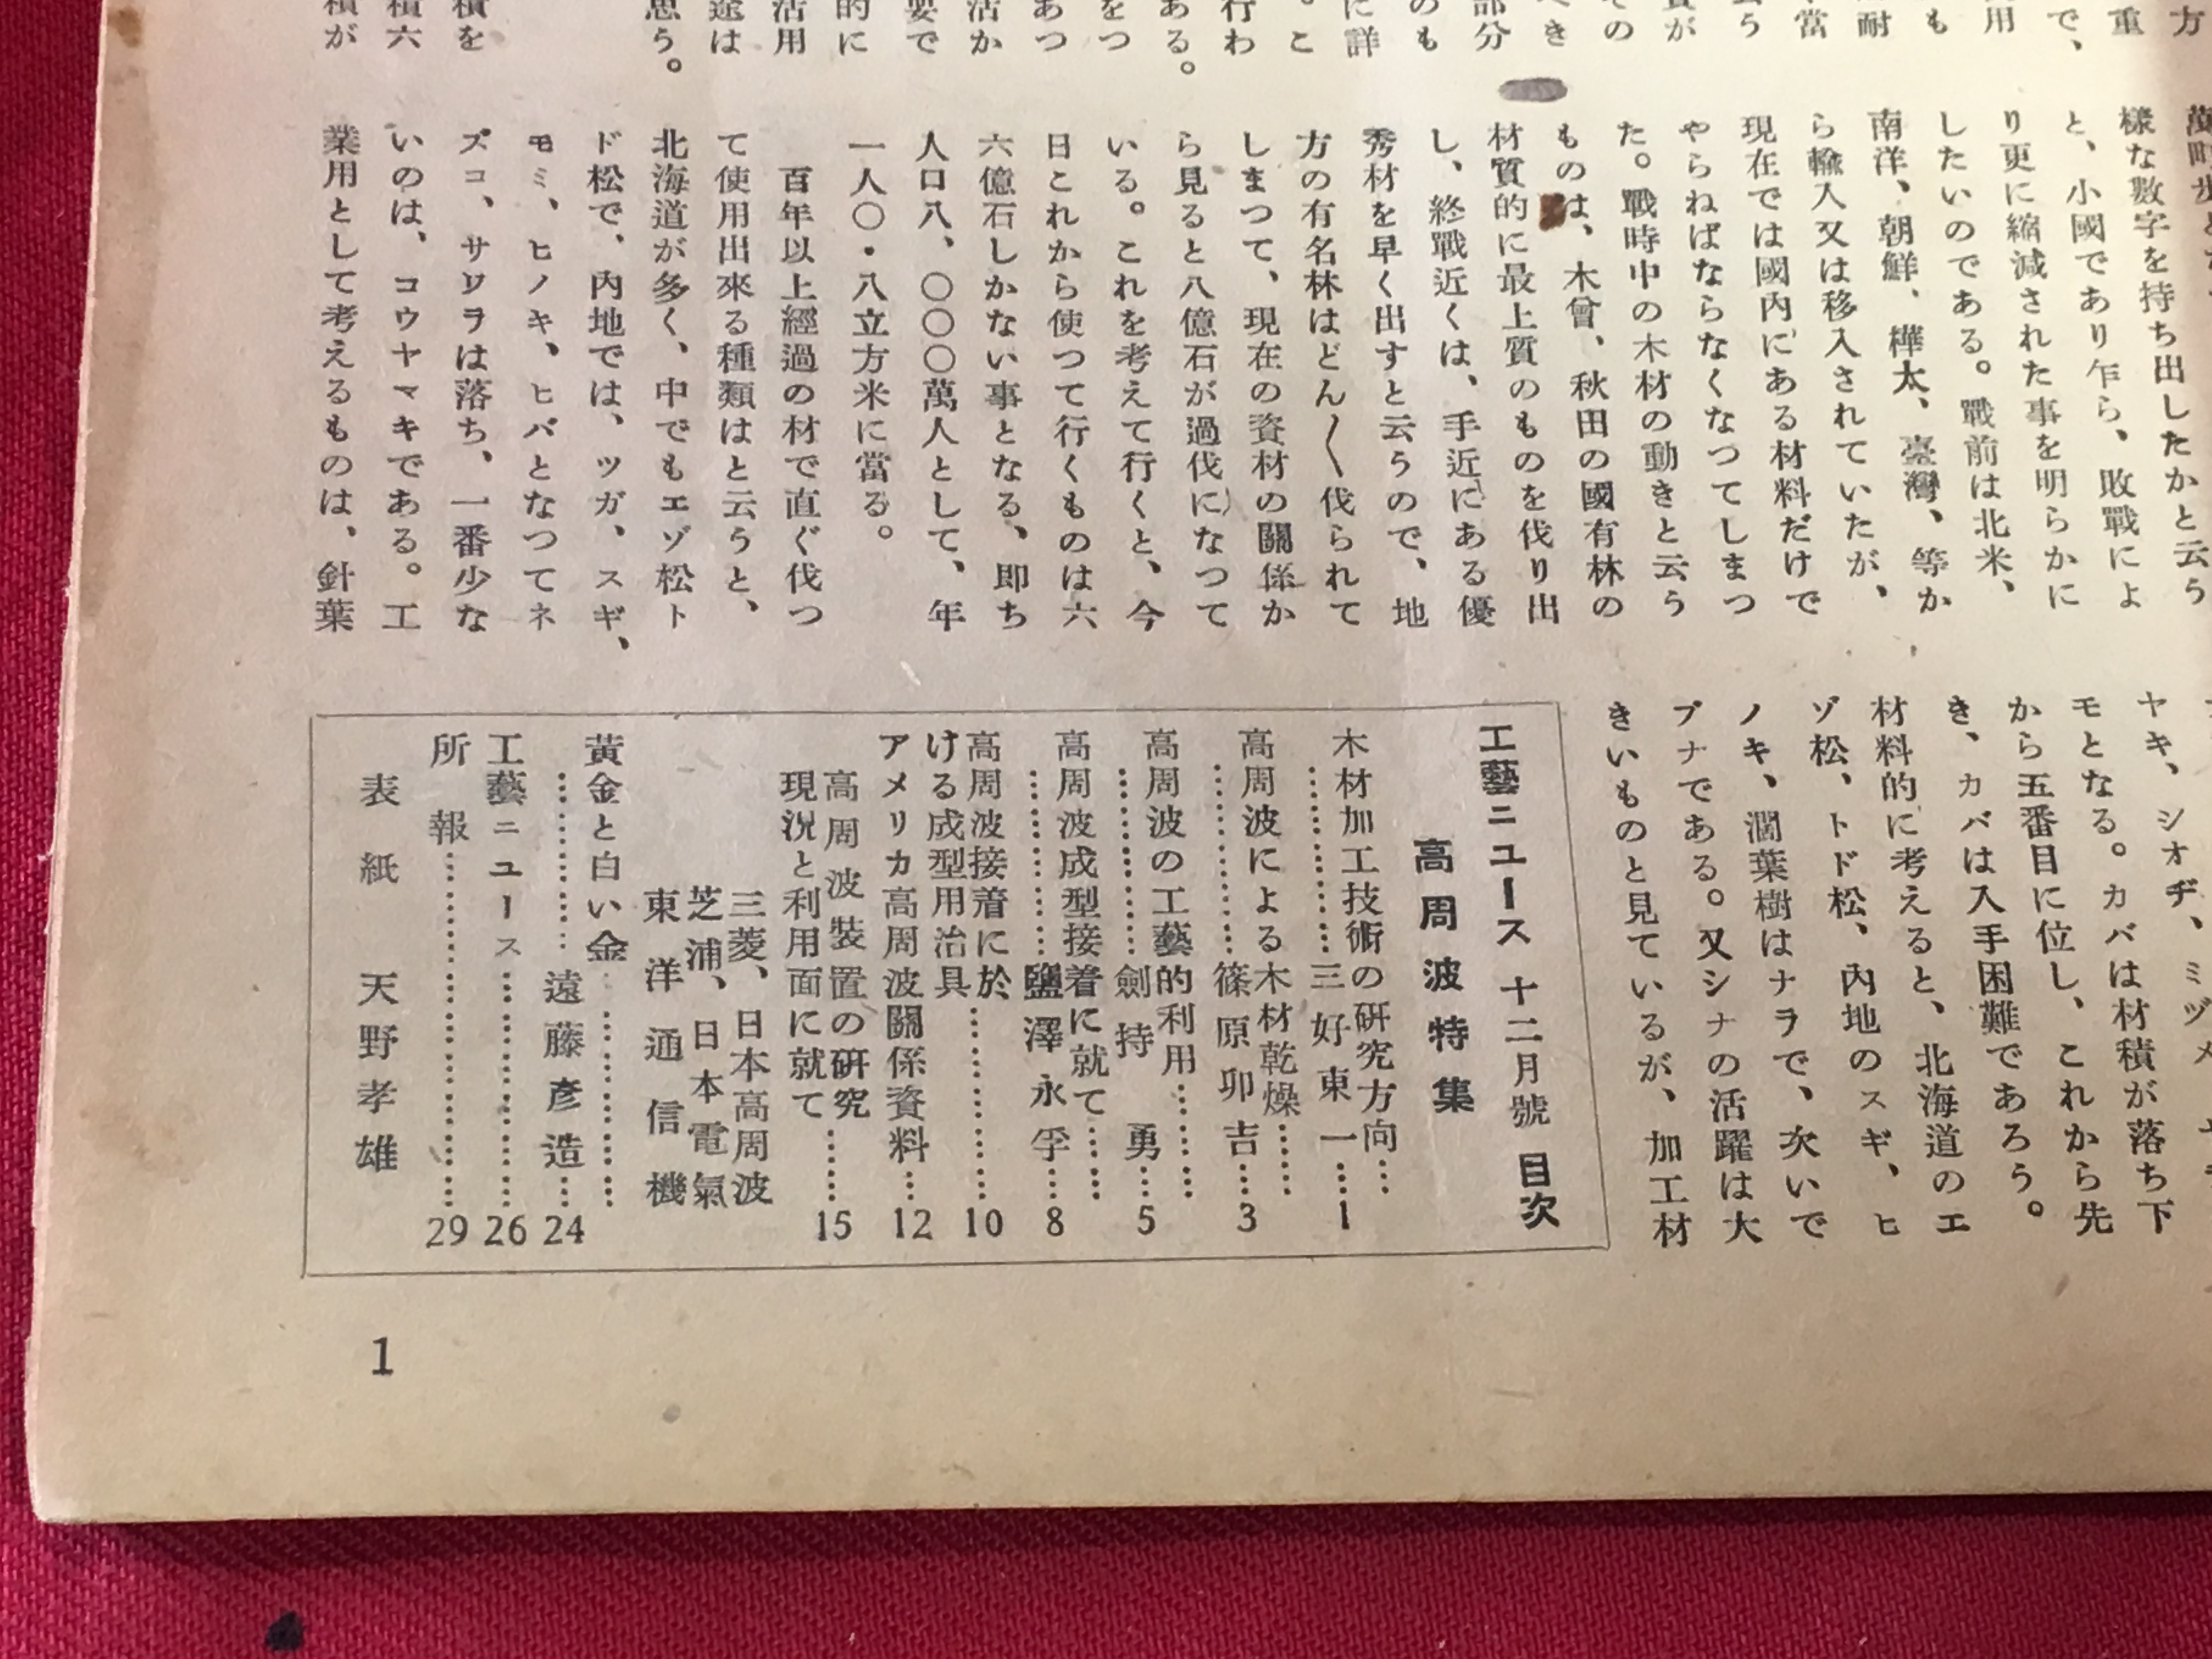 様な数字を持ち出したかと云う
と、小國であり乍ら、敗戰によ
り更に縮減された事を明らかに
したいのである。戰前は北米、
南洋、朝鮮、樺太、臺灣、等か
ら輸入又は移入されていたが、
現在では國内にある材料だけで
やらねばならなくなつてしまつ
た。戰時中の木材の動きと云う
ものは、木曾、秋田の國有林の
材質的に最上質のものを伐り出
し、終戰近くは、手近にある優
秀材を早く出すと云うので、地
方の有名林はどん〱伐られて
しまつて、現在の資材の關係か
ら見ると八億石が過伐になつて
いる。これを考えて行くと、今
日これから使つて行くものは六
六億石しかない事となる、即ち
人口八、〇〇〇萬人として、年
一人〇・八立方米に當る。
百年以上經過の材で直ぐ伐つ
て使用出來る種類はと云うと、
北海道が多く、中でもエゾ松ト
ド松で、内地では、ツガ、スギ、
モミ、ヒノキ、ヒバとなつてネ
ズコ、サワラは落ち、一番少な
いのは、コウヤマキである。工
業用として考えるものは、針葉
モとなる。カバは材積が落ち下
から五番目に位し、これから先
き、カバは入手困難であろう。
材料的に考えると、北海道のエ
ゾ松、トド松、内地のスギ、ヒ
ノキ、濶葉樹はナラで、次いで
ブナである。又シナの活躍は大
きいものと見ているが、加工材
工藝ニユース 十二月號 目次
高周波特集
木材加工技術の研究方向…
……三好東一…1
高周波による木材乾燥……
……篠原卯吉…3
高周波の工藝的利用……
……劍持 勇…5
高周波成型接着に就て……
……鹽澤永孚…8
高周波接着に於
ける成型用治具……10
アメリカ高周波關係資料…12
高周波裝置の研究
現況と利用面に就て……15
三菱、日本高周波
芝浦、日本電氣
東洋通信機
黃金と白い金……
……遠藤彦造…24
工藝ニユース……26
所報……29
表紙 天野孝雄
1